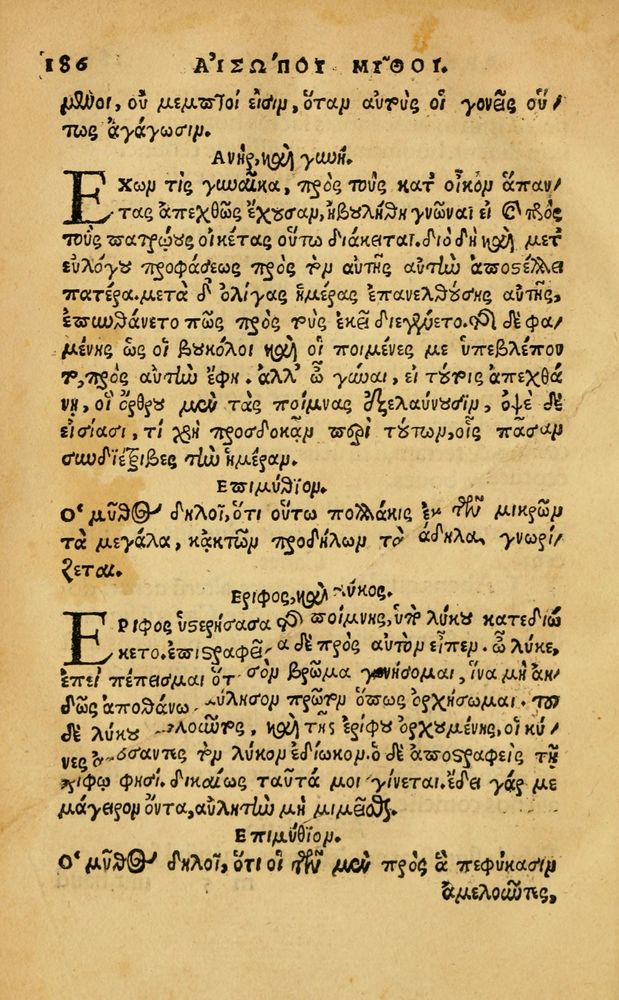 186 ΑΙΣΩΠΟΥ ΜΥΘΟΙ.
οὐ μεμπτοί εἰσιν, ὅταν αὐτοὺς οἱ γονεῖς οὕ/
τως ἀγάγωσιν.
Ανὴρ, καὶ γυνή.
ΕΧων τὶς γυναῖκα, πρὸς τοὺς κατ᾽ οἶκον ἅπαν/
τας ἀπεχθῶς ἔχουσαν, ἠβουλήθη γνῶναι εἰ καὶ πρὸς
τοὺς πατρῴους οἰκέτας οὕτω διάκειται. διὸ δὴ καὶ μετ᾽
εὐλόγου προφάσεως πρὸς τὸν αὐτῆς αὐτὴν ἀποστέλλει
πατέρα. μετὰ δ᾽ ὀλίγας ἡμέρας ἐπανελθούσης αὐτῆς,
ἐπυνθάνετο πῶς πρὸς τοὺς ἐκεῖ διεγένετο. τῆς δὲ φα/
μένης ὡς οἱ βουκόλοι καὶ οἱ ποιμένες με ὑπεβλέπον
το, πρὸς αὐτὴν ἔφη. ἀλλ᾽ ὦ γύναι, εἰ τούτοις ἀπεχθά
νῃ, οἳ ὄρθρου μὲν τὰς ποίμνας ἐξελαύνουσιν, ὀψὲ δὲ
εἰσίασι, τί χρὴ προσδοκᾷν περὶ τούτων, οἷς πᾶσαν
συνδιέτριβες τὴν ἡμέραν.
Επιμύθιον.
Ο῾ μῦθος δηλοῖ, ὅτι οὕτω πολλάκις ἐκ τῶν μικρῶν
τὰ μεγάλα, κἀκ τῶν προδήλων τὰ ἄδηλα γνωρί/
ζεται.
Εριφος, καὶ λύκος.
ΕΡιφος ὑστερήσασα τῆς ποίμνης, ὑπὸ λύκου κατεδιώ
κετο. ἐπιστραφεῖσα δὲ πρὸς αὐτὸν εἶπεν. ὦ λύκε,
ἐπεὶ πέπεισμαι ὅτι σὸν βρῶμα γενήσομαι, ἵνα μὴ ἀη/
δῶς ἀποθάνω αὔλησον πρῶτον ὅπως ὀρχήσωμαι. τοῦ
δὲ λύκου αὐλοῦντος, καὶ τῆς ἐρίφου ὀρχουμένης, οἱ κύ/
νες ἀκούσαντες τὸν λύκον ἐδίωκον. ὁ δὲ ἀποστραφεὶς τῇ
ἐρίφῳ φησί. δικαίως ταῦτά μοι γίνεται. ἔδει γάρ με
μάγειρον ὄντα, αὐλητὴν μὴ μιμεῖσθαι.
Επιμύθιον.
Ο῾ μῦθος δηλοῖ, ὅτι οἱ τῶν μὲν πρὸς ἃ πεφύκασιν
ἀμελοῦντες,